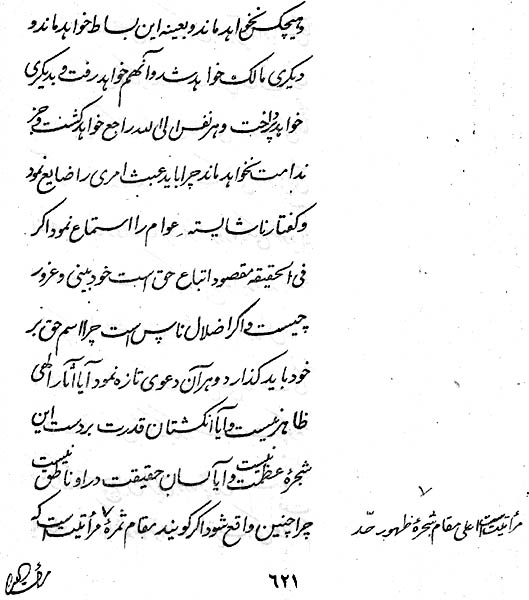 و هیچکس نخواهد ماند و بعینه این بساط خواهد ماند و
دیگری مالک خواهد شد و آنهم خواهد رفت و بدیگری
خواهد پرداخت و هر نفس الی الله راجع خواهد گشت و جز
ندامت نخواهد ماند چرا باید عبث امری را ضایع نمود
و گفتار ناشایسته عوام را استماع نمود اگر
فی الحقیقه مقصود اتباع حق است خود بینی و غرور
چیست و اگر اضلال ناس است چرا اسم حق بر
خود باید گذارد و هر آن دعوی تازه نمود آیا آثار الهی
ظاهر نیست و آیا انگشتان قدرت بر دست این
شجرهٔ عظمت نیست و آیا لسان حقیقت در او ناطق نیست
چرا چنین واقع شود اگر گویند مقام ثمرهٔ ۷ مرأتیت است که
۷
مرأتیت است اعلی مقام شجرهٔ ظهور حدّ
۶۲۱